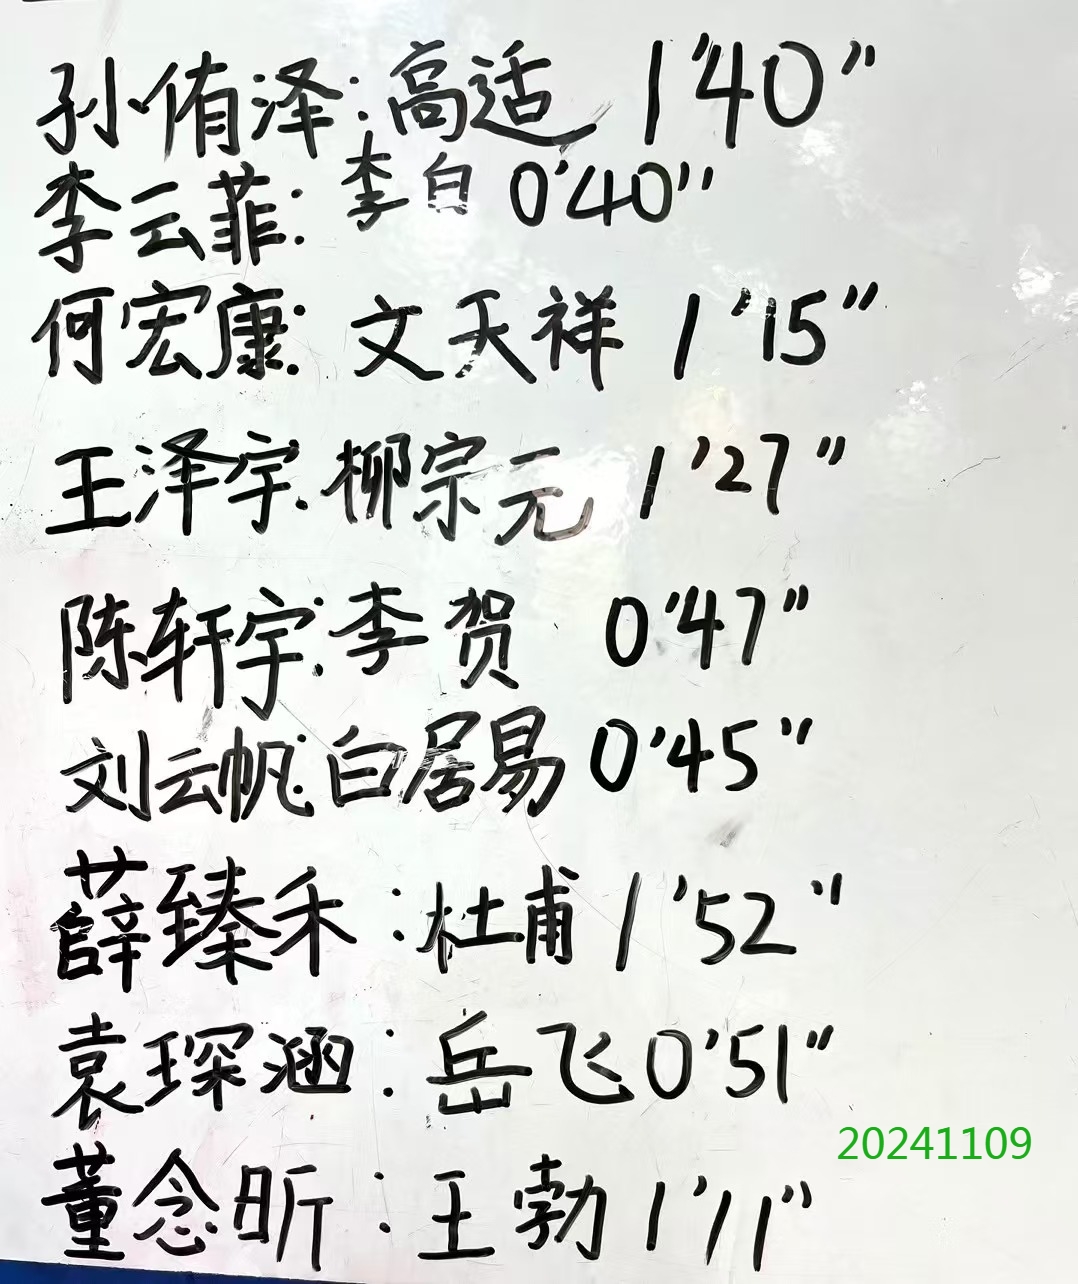 孙侑泽:高适 1'40"
李云菲:李白 0'40"
何宏康:文天祥 1'15"
王泽宇:柳宗元 1'27"
陈轩宇:李贺 0'47"
刘云帆:白居易 0'45"
薛臻禾:杜甫 1'52"
袁琛涵:岳飞 0'51"
20241109
董念昕:王勃 1'11"